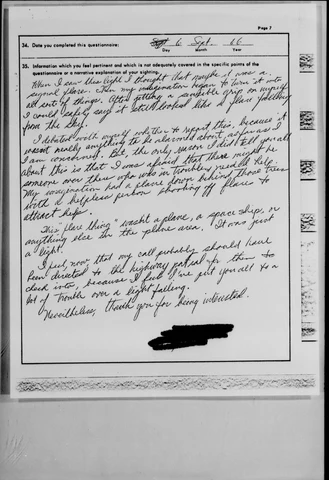 Page 7
34. Date you completed this questionnaire: 6 Sept. 66
Day Month Year
35. Information which you feel pertinent and which is not adequately covered in the specific points of the
questionnaire or a narrative explanation of your sighting.
When I saw this light I thought that maybe it was a
signal flare. Then my imagination began to turn it into
all sorts of things. After getting a sensible grip on myself
I could safely say it still looked like a flare falling
from the sky.
I debated with myself whether to report this, because it
wasn't really anything to be alarmed about as far as I
am concerned. But, the only reason I did tell you all
about this is that I was afraid that there might be
someone over there who was in trouble, needed help.
My imagination had a plane down behind those trees
with a helpless person shooting off flares to
attract help.
This "flare thing" wasn't a plane, a space ship, or
anything else in the plane area. It was just
a light.
I feel, now, that my call probably should have
been directed to the highway patrol for them to
check into, because I feel I've put you all to a
lot of trouble over a light falling.
Nevertheless, thank you for being interested.